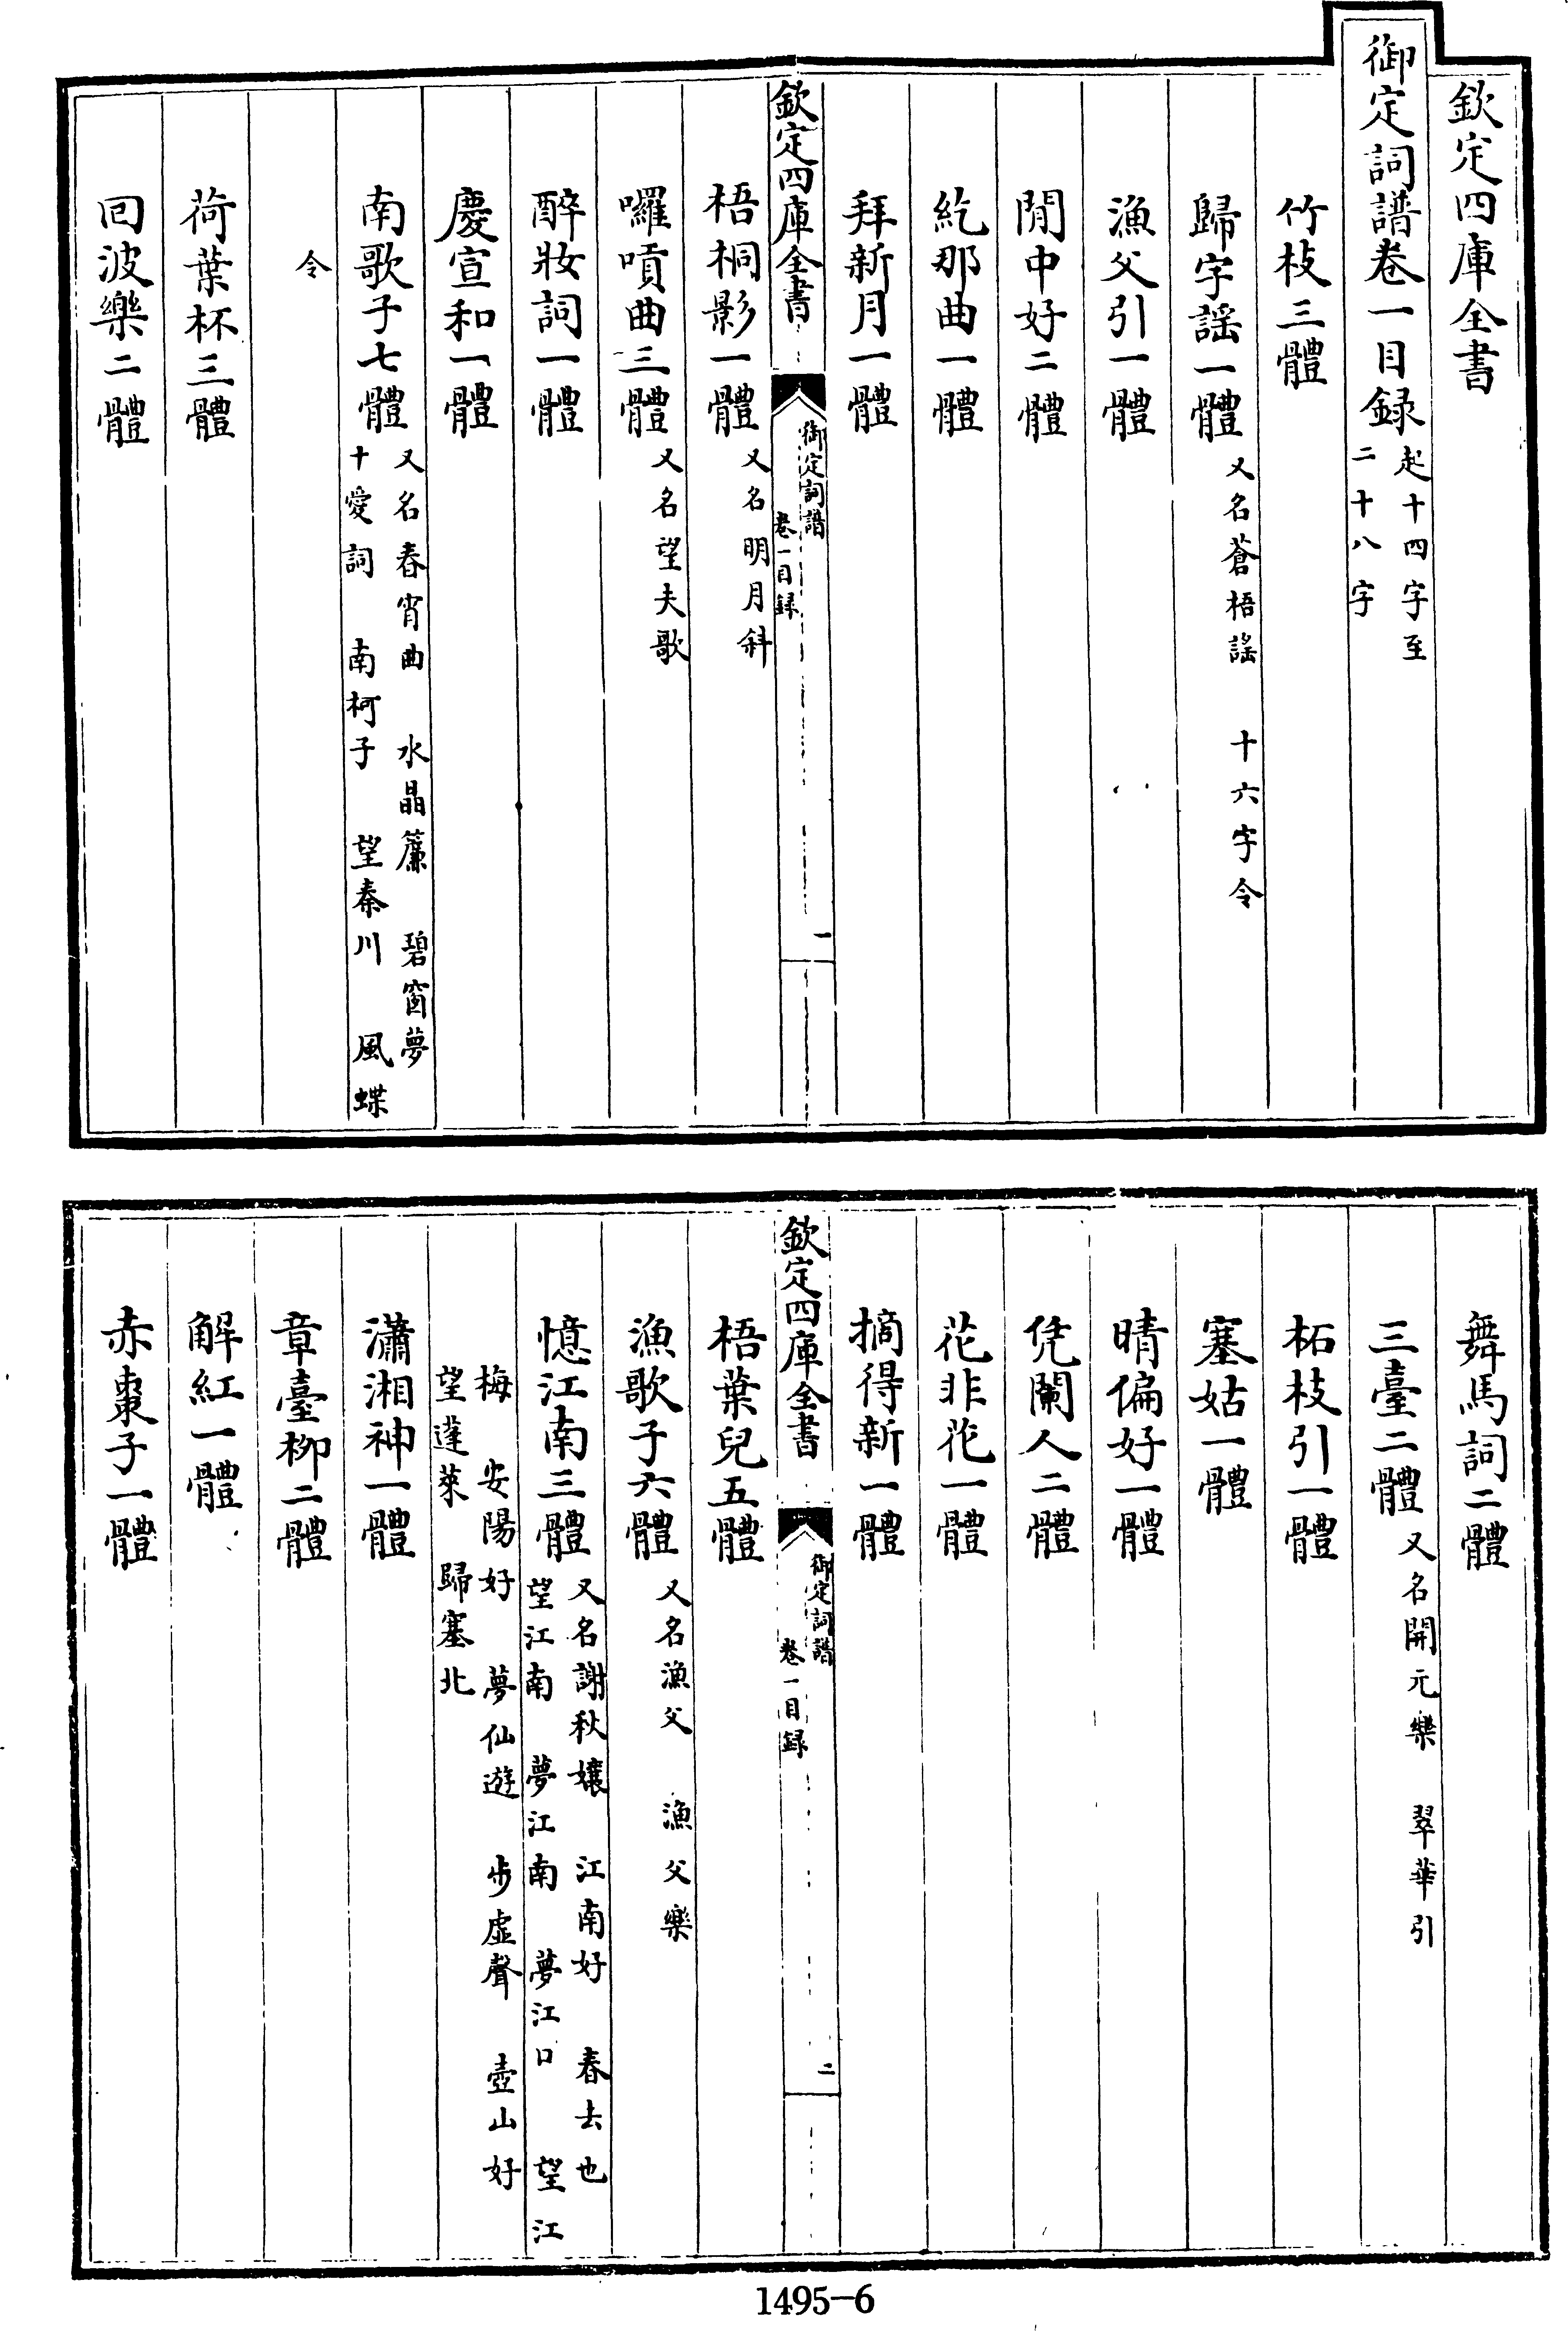 欽定四庫全書
御定詞譜卷一目録起十四字至二十八字
竹枝三體
歸字謡一體又名蒼梧謡　十六字令
漁父引一體
閒中好二體
紇那曲一體
拜新月一體
欽定四庫全書
御定詞譜
卷一目録
一
梧桐影一體又名明月斜
囉嗊曲三體又名望夫歌
醉妝詞一體
慶宣和一體
南歌子七體又名春宵曲　水晶簾　碧窗夢
十愛詞　南柯子　望秦川　風蝶
令
荷葉杯三體
回波樂二體
舞馬詞二體
三臺二體又名開元樂　翠華引
柘枝引一體
塞姑一體
晴偏好一體
凭闌人二體
花非花一體
摘得新一體
欽定四庫全書
御定詞譜
卷一目録
二
梧葉兒五體
漁歌子六體又名漁父　漁父樂
憶江南三體又名謝秋孃　江南好　春去也
望江南　夢江南　夢江口　望江
梅　安陽好　夢仙遊　步虛聲　壺山好
望蓬萊　歸塞北
瀟湘神一體
章臺柳二體
解紅一體
赤棗子一體
1495-6